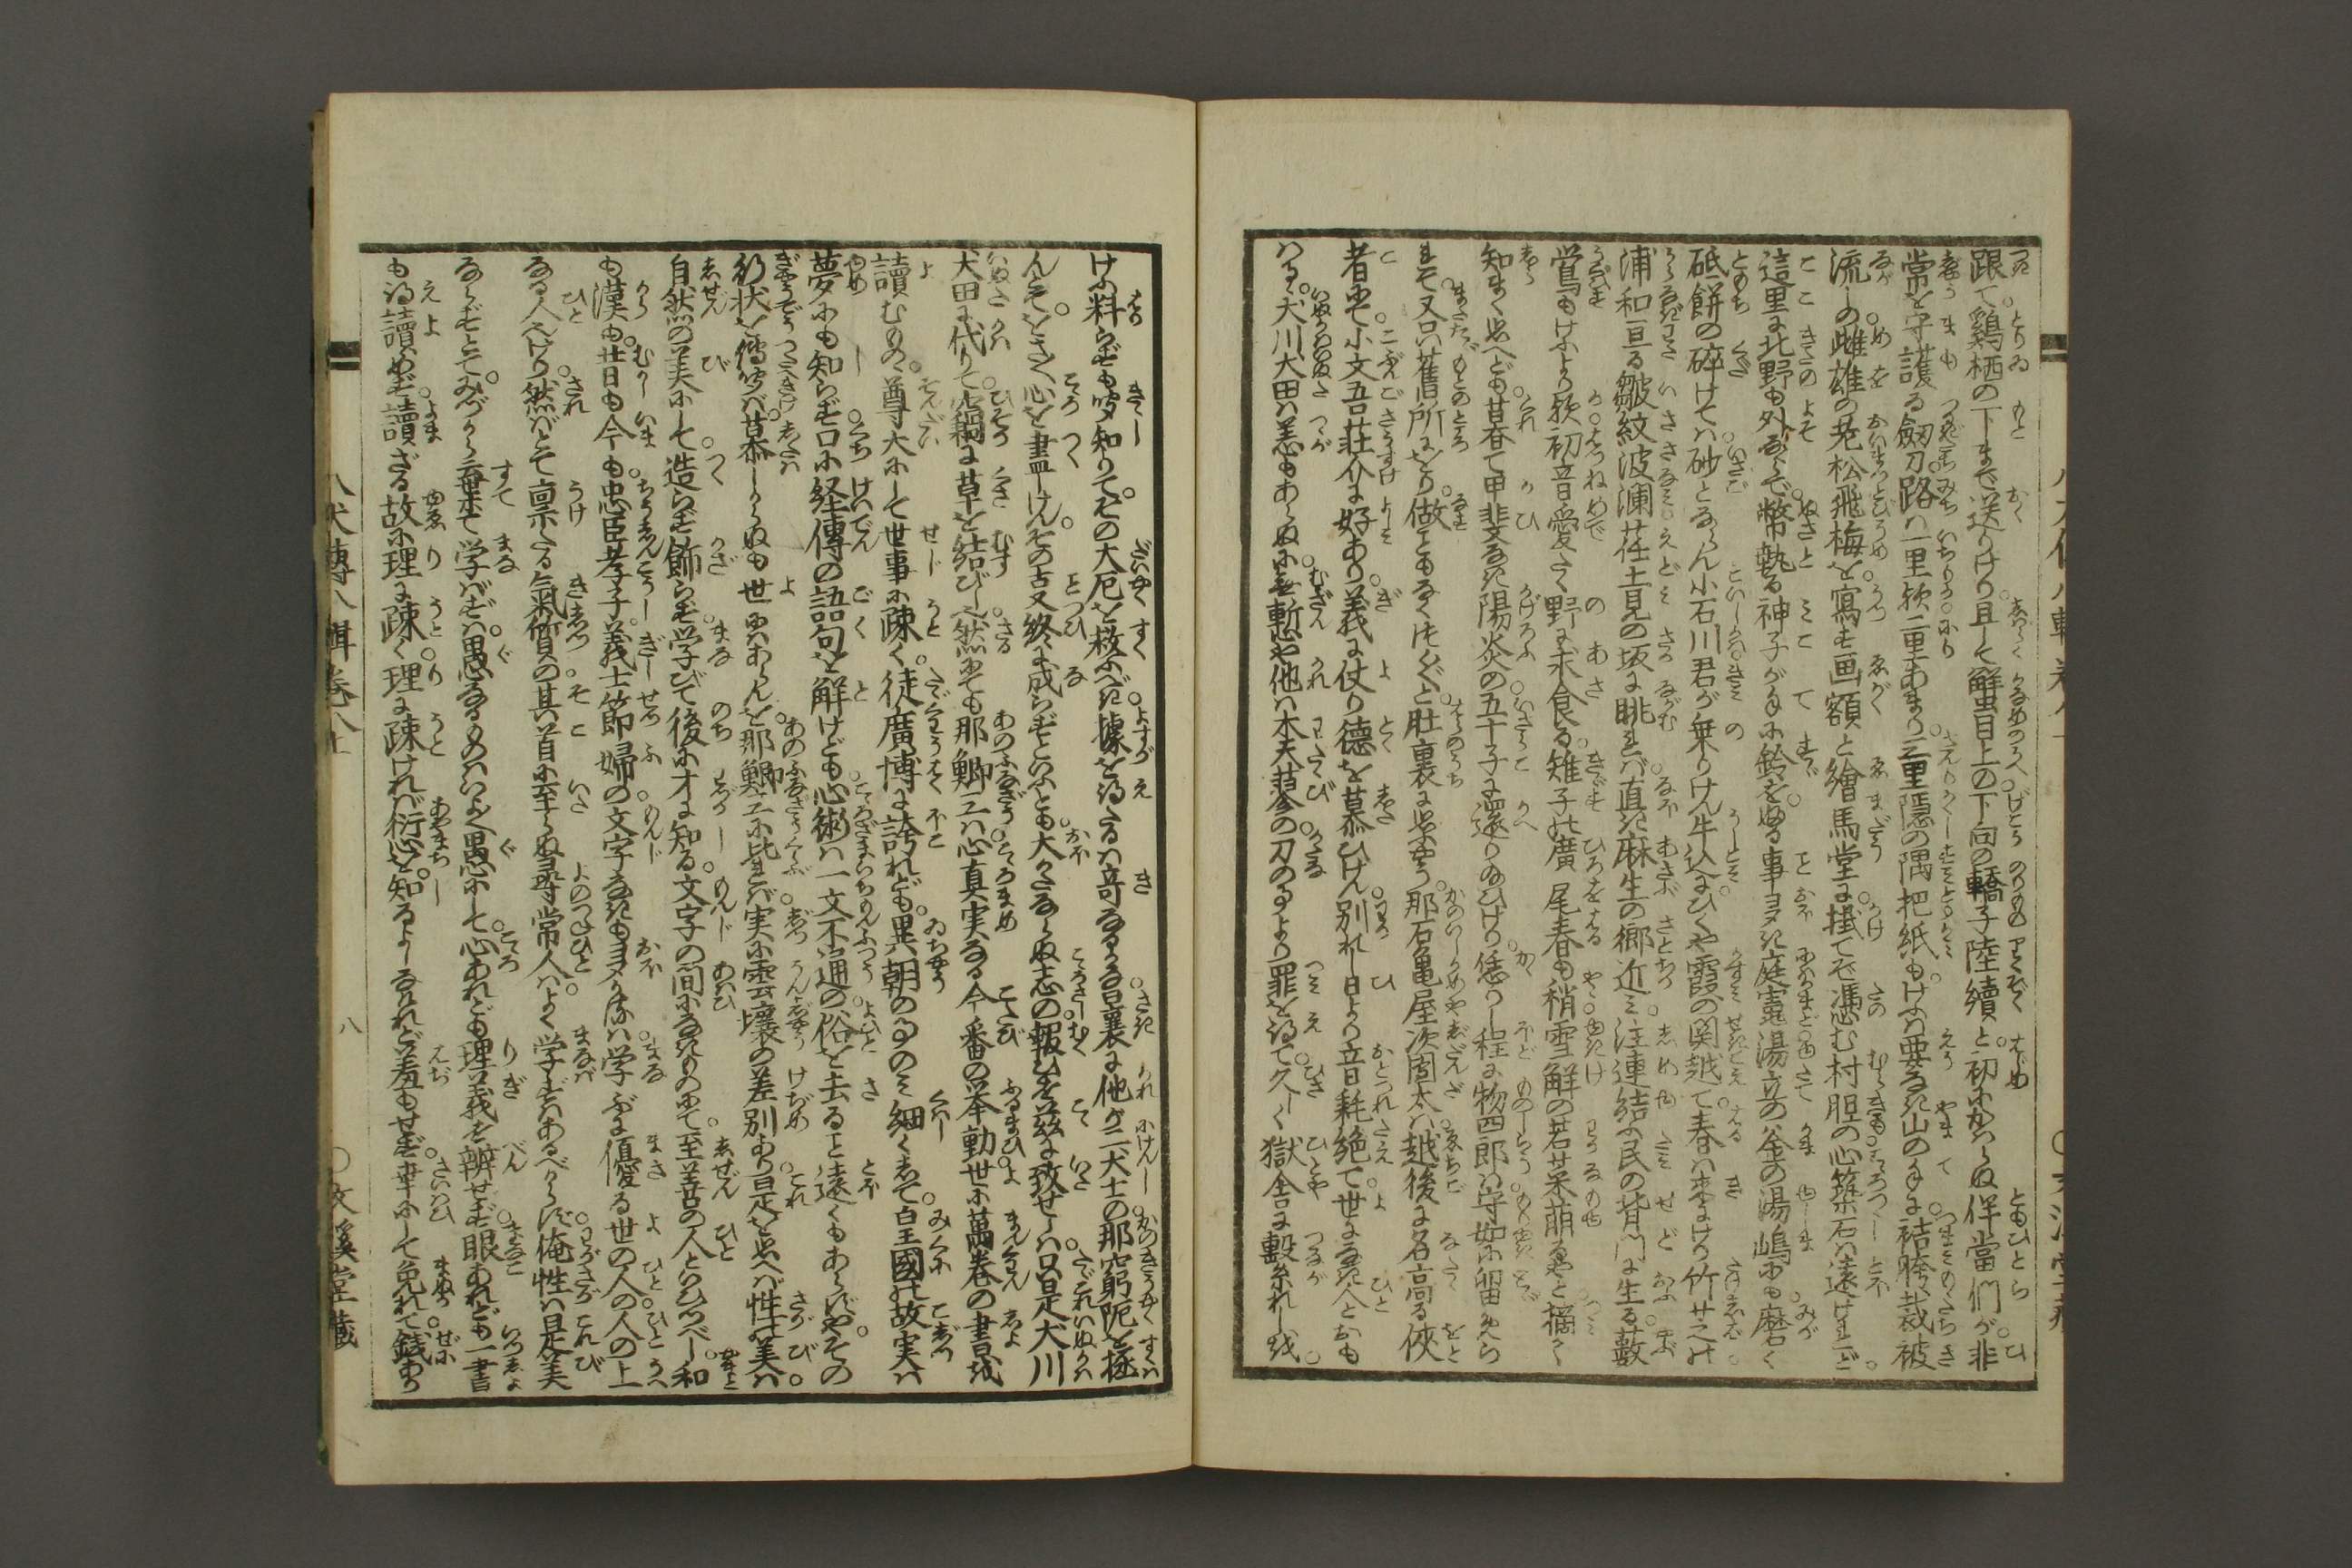 跟て。鶏栖の下まで送りけり。且して蟹目上の。下向の轎子陸續と。初にかはらぬ伴當們が。非
常を守護る劔刀。路は一里欤二里あまり。三里隠の隅把紙も。けふは要なき山の手に。袺胯裁被
流しの。雌雄の老松飛梅を。寫す画額と繪馬堂に。掛てぞ憑む村肝の。心筑石は遠けれど。
這里に北野も外ならで。幣執る神子が手に鈴を。ぬる事ヨタき庭竃。湯立の釜の湯嶋にも。磨く
砥餅の砕けては。砂とならん小石川。君が乗りけん牛込に。ひくや霞の関越て。春は来にけり竹芝の
浦和亘る皺紋波瀾。荏土見の坂に眺れば。直き麻生の郷近み。注連結ふ民の背門に生る。藪
鴬もけふより欤。初音愛たく野に求食る。雉子の廣尾春も稍。雪解の若菜萠るやと。摘く
知まく思へども。某春て甲斐なき陽炎の。五十子に還りゐひけり。恁りし程に物四郎は。守如に留めら
れそ。又只舊所にをり。做こともなくつく〴〵と。肚裏に思ふやう。那石亀屋次團太は。越後に名高る俠
者にて。小文吾荘介に好あり。義に仗り徳を慕ひけん。別れし日より音耗絶て。世になき人とおも
はる。犬川犬田は恙もあらぬに。無慙や他は木天蓼の。刀の事より罪を得て。久しく獄舎に繋れしを
けふ料らずも聞知りて。その大厄を救ふべき。據を得たるは奇なるかな。曩に他が二犬士の。那窮阨を拯
んとて。をさ〳〵心を盡しけん。その㕝又終に成らずといふとも。大かたならぬ志の。報ひを茲に致せしは。只是犬川
犬田に代りて。窃に草を結びし也。然にても那鯽三は。心真実なる今番の挙動。世に萬巻の書を
讀むもの。尊大にして世事に疎く。徒廣博に誇れども。異朝の事のみ細くして。皇國の故実は
夢にも知らず。口に経傳の語句を解けども。心術は一文不通の。俗を去ること遠くもあらず。やその
行状を傳聞ば。慕しからぬも世にはあらんを。那鯽三に比れば。実に雲壤の差別あり。是を思へば性の美は。
自然の美にして。造らず飾らず。学びて後に才に知る。文字の間になきものにて。至善の人といひつべし。和
も漢も。昔も今も。忠臣孝子義士節婦の。文字なきもヨタかるは。学ぶに優る世の人の。人の上
なる人也けり。然ばとて稟示たる氣質の。其首に至らぬ尋常人は。よく学ばずはあるべからず。俺性は是美
ならずとて。みづから棄て学ばずは。愚なるものはいよ〳〵愚にして。心あれども理義を辨せず。眼あれども一書
も得讀めず。讀ざる故に理に疎く。理に疎ければ愆を。知るよしなければ羞もせず。幸にして免れて。錢あり
八犬傳八輯巻八上
八
○文溪堂藏